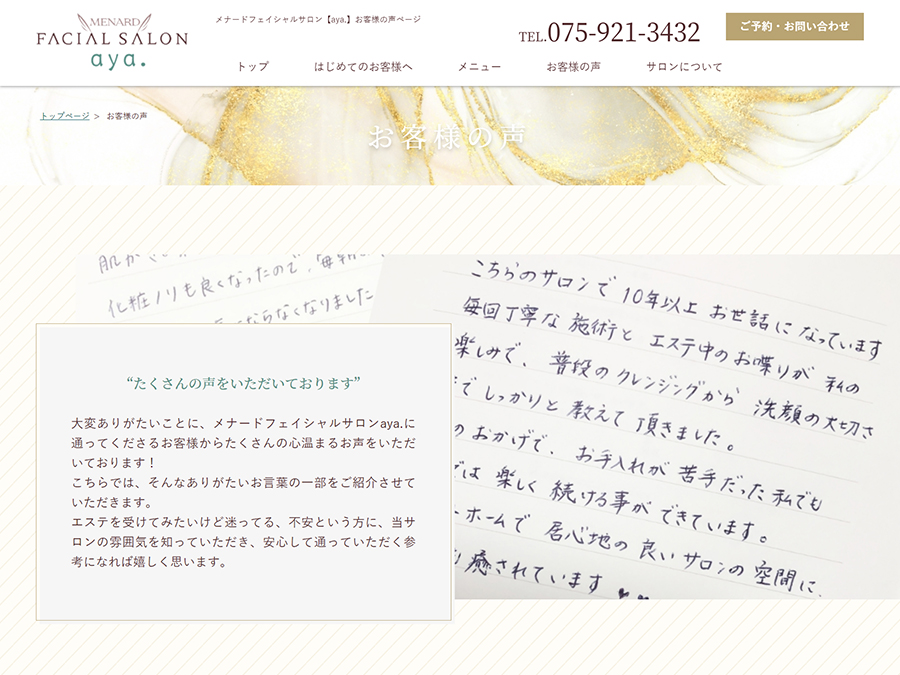 MENARD
FACIAL SALON
aya.
メナードフェイシャルサロン【aya.】お客様の声ページ
TEL.075-921-3432
ご予約・お問い合わせ
トップ
はじめてのお客様へ
メニュー
お客様の声
サロンについて
トップページ > お客様の声
お客様の声
化粧ノリも良くなったので、毎朝
ならなくなりました
こちらのサロンで 10年以上 お世話に なっています
毎回丁寧な 施術と エステ中のお喋りが 私の
楽しみで、普段の クレンジングから 洗顔の大切さ
で しっかりと 教えて 頂きました。
のおかげで、お手入れが 苦手だった 私でも
は 楽しく 続ける事が できています。
ホームで 居心地の 良いサロンの 空間に、
癒されています
“たくさんの声をいただいております”
大変ありがたいことに、メナードフェイシャルサロンaya.に
通ってくださるお客様からたくさんの心温まるお声をいただ
いております！
こちらでは、そんなありがたいお言葉の一部をご紹介させて
いただきます。
エステを受けてみたいけど迷ってる、不安という方に、当サ
ロンの雰囲気を知っていただき、安心して通っていただく参
考になれば嬉しく思います。